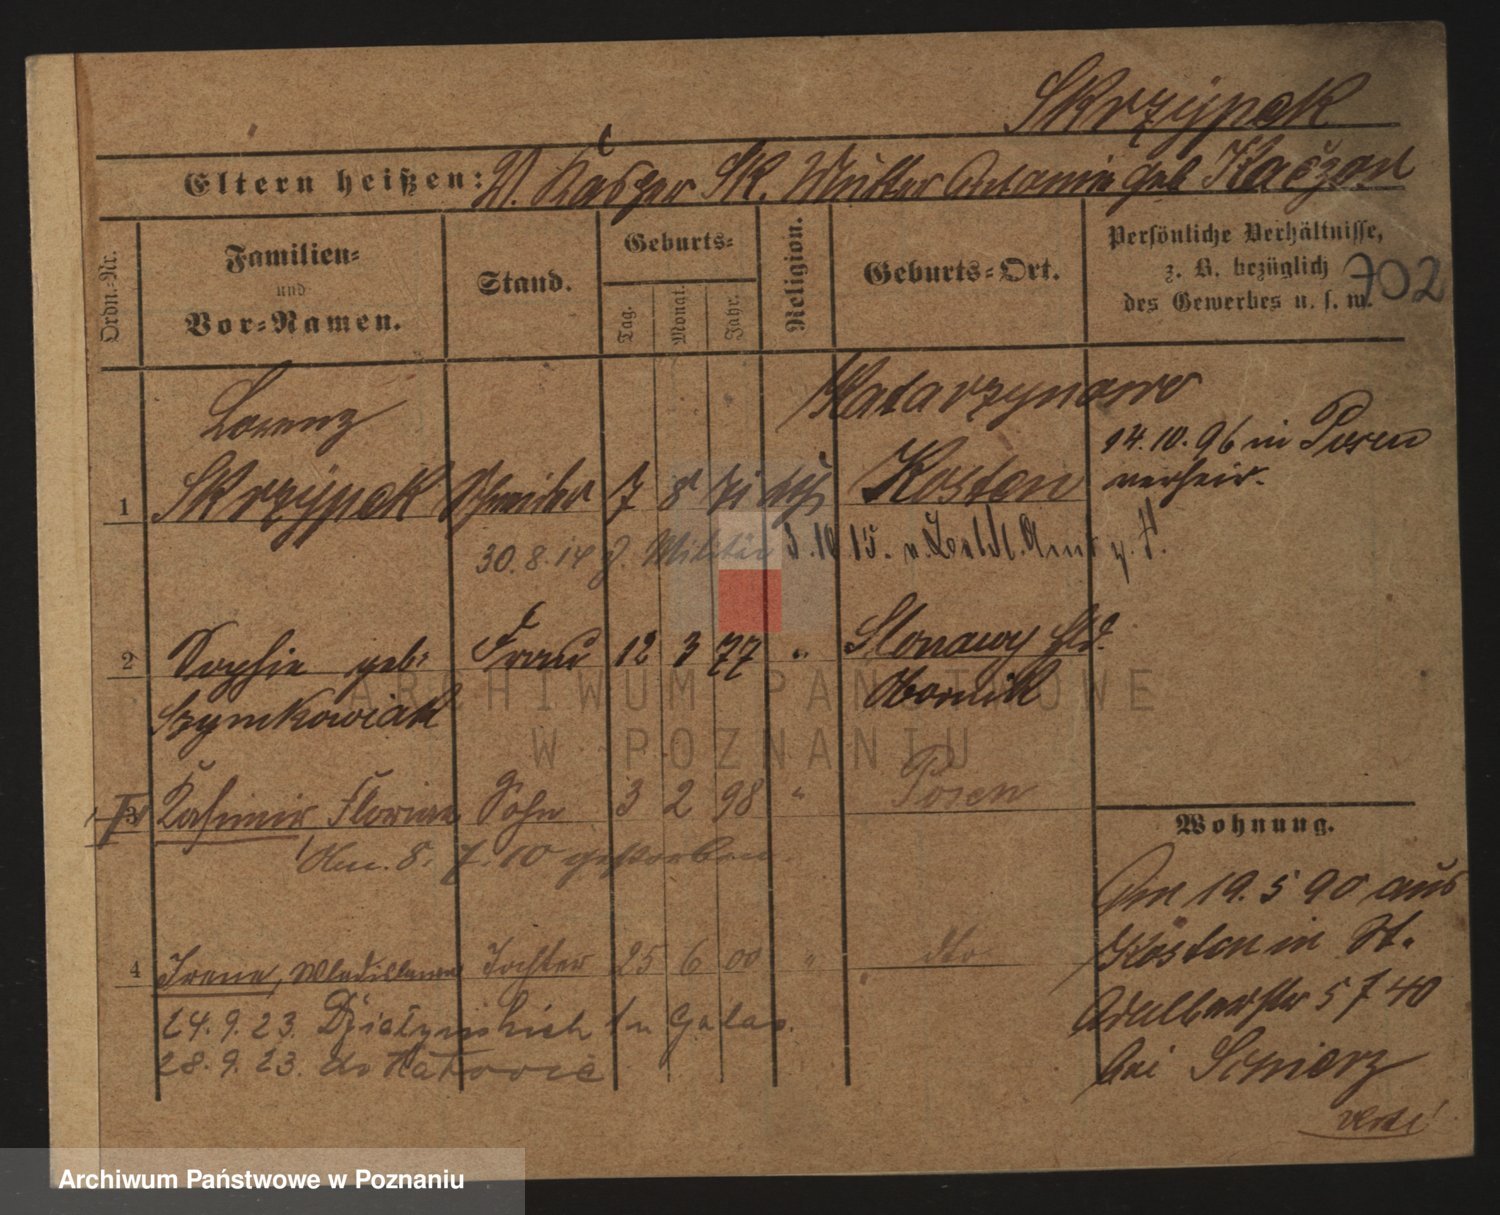 Skrzypek
Eltern heißen: V. Kasper Sk. Mutter Antonie geb Kaczan
Ordn.-Nr.
Familien-
und
Vor-Namen.
Stand.
Geburts-
Tag.
Monat.
Jahr.
Religion.
Geburts-Ort.
Persönliche Verhältnisse,
z. B. bezüglich
des Gewerbes u. s. w.
702
Lorenz
Katarzynowo
1 Skrzypek 7 8 71 Kosten
14.10.96 in Posen
verheir.
30.8.14 z. Militär 3.10 15. v.
2 Sophie geb. Frau 12 3 77 " Slonawy
Szymkowiak Obornik
3 Kasimir Florian Sohn 3 2 98 " Posen
Am. 8. 7. 10 gestorben.
4 Irene, Wladislawa Tochter 25 6 00 " dto
24.9.23. Działyńskich
28.9.23. do Katowic
Wohnung.
Am 19.5 90 aus
Kosten in St.
Adalbertstr 5 7 40
bei
ARCHIWUM PAŃSTWOWE
W POZNANIU
Archiwum Państwowe w Poznaniu